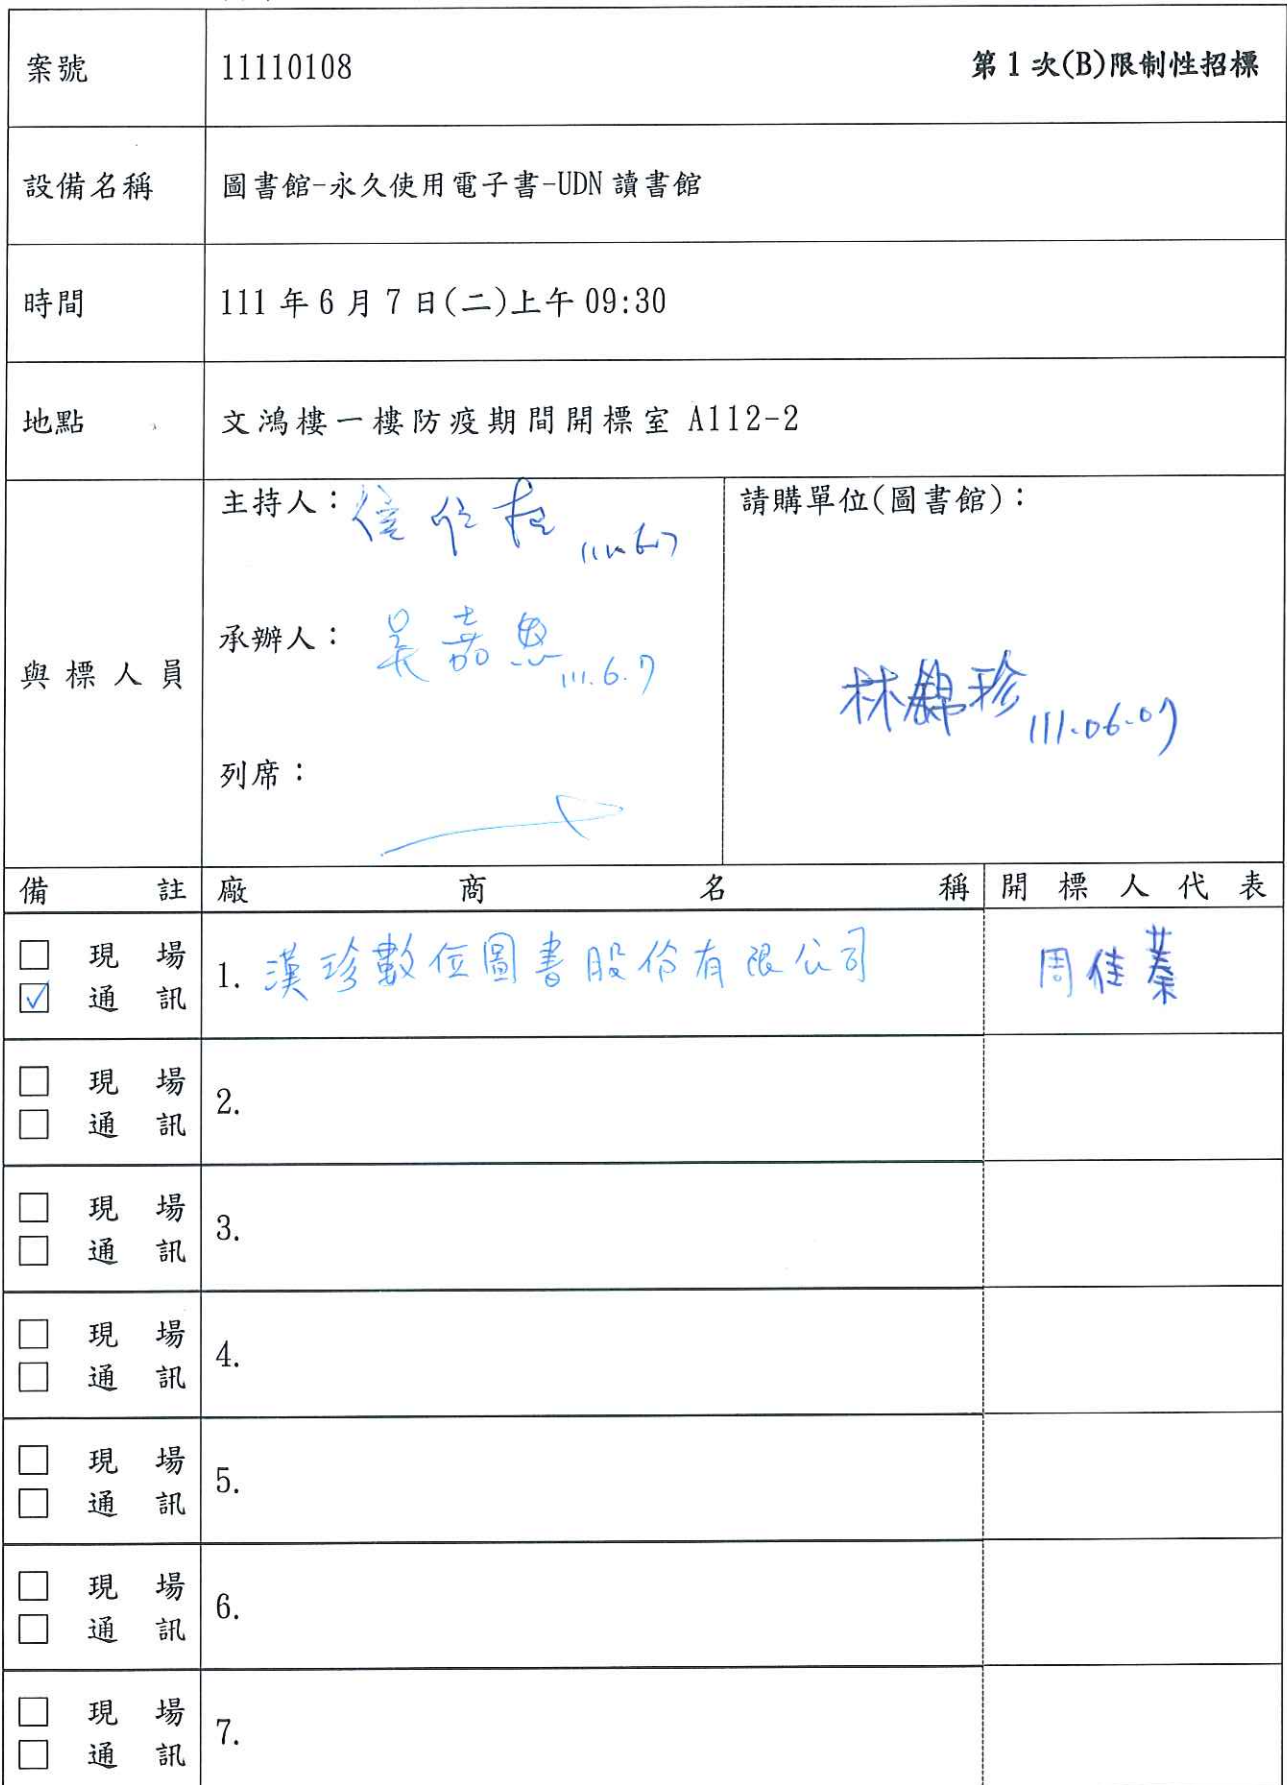 案號 11110108 第1次(B)限制性招標
設備名稱 圖書館-永久使用電子書-UDN讀書館
時間 111年6月7日(二)上午09:30
地點 文鴻樓一樓防疫期間開標室 A112-2
與標人員
主持人： 111.6.7
承辦人：吳嘉恩 111.6.7
列席：
請購單位(圖書館)：
林錦珍 111.06.07
備註 廠商名稱 開標人代表
□ 現場
☑ 通訊
1. 漢珍數位圖書股份有限公司 周佳蓁
□ 現場
□ 通訊
2.
□ 現場
□ 通訊
3.
□ 現場
□ 通訊
4.
□ 現場
□ 通訊
5.
□ 現場
□ 通訊
6.
□ 現場
□ 通訊
7.